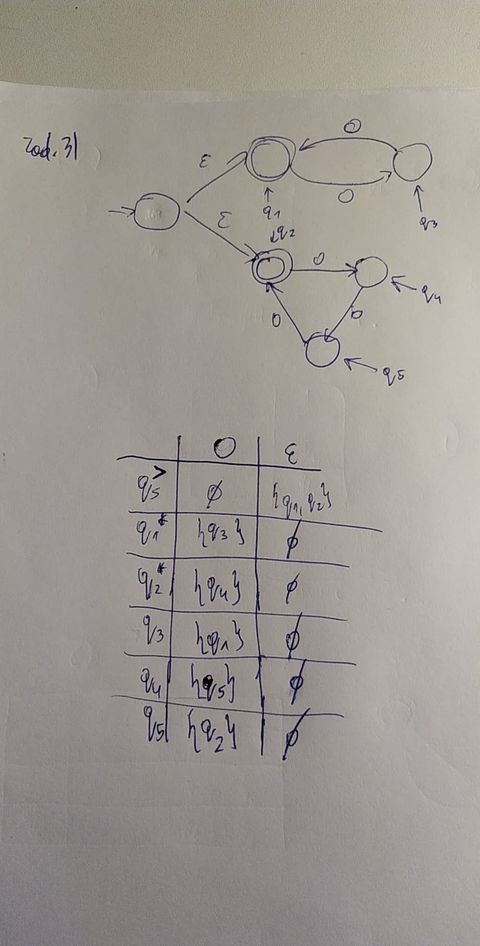 zad. 3)
ε
0
0
q1
q3
ε
q2
0
q4
0
0
q5
0 ε
qs> ∅ {q1, q2}
q1* {q3} ∅
q2* {q4} ∅
q3 {q1} ∅
q4 {q5} ∅
q5 {q2} ∅